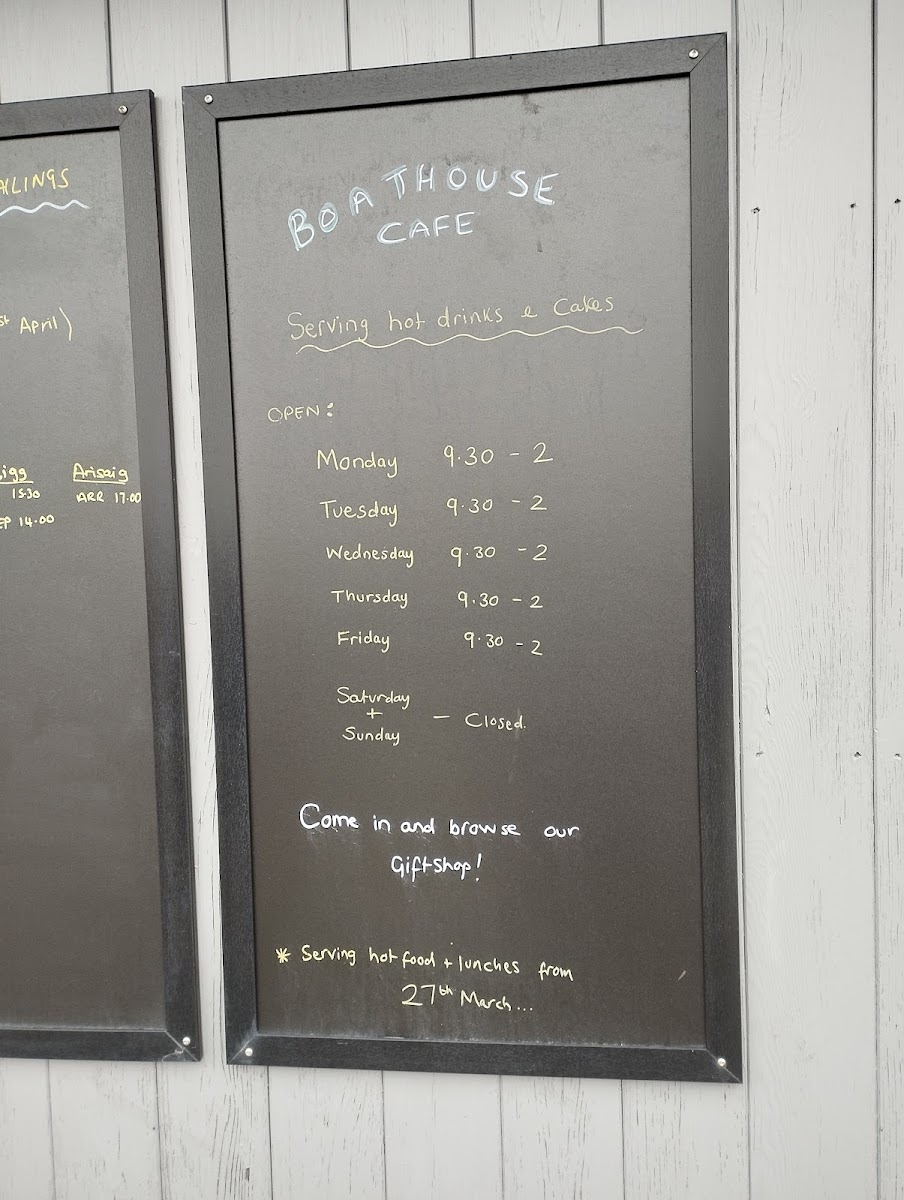 April)
Arisaig
15.30
ARR 17.00
14.00
BOATHOUSE
CAFE
Serving hot drinks & Cakes
OPEN:
Monday 9.30 - 2
Tuesday 9.30 - 2
Wednesday 9.30 - 2
Thursday 9.30 - 2
Friday 9.30 - 2
Saturday
+
Sunday
- Closed.
Come in and browse our
Giftshop!
* Serving hot food + lunches from
27th March...